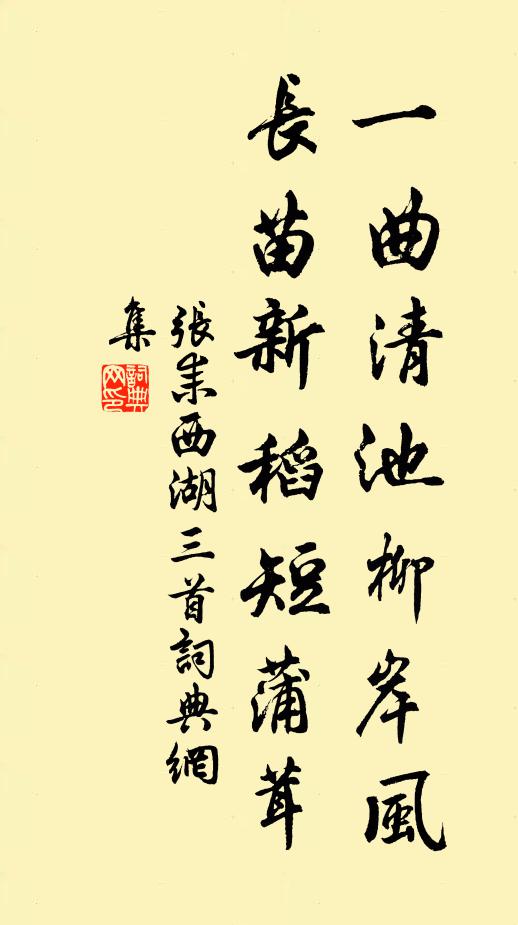 一曲清池柳岸風
長苗新稻短蒲茸
張耒西湖三首詞典網
集
詞典網印